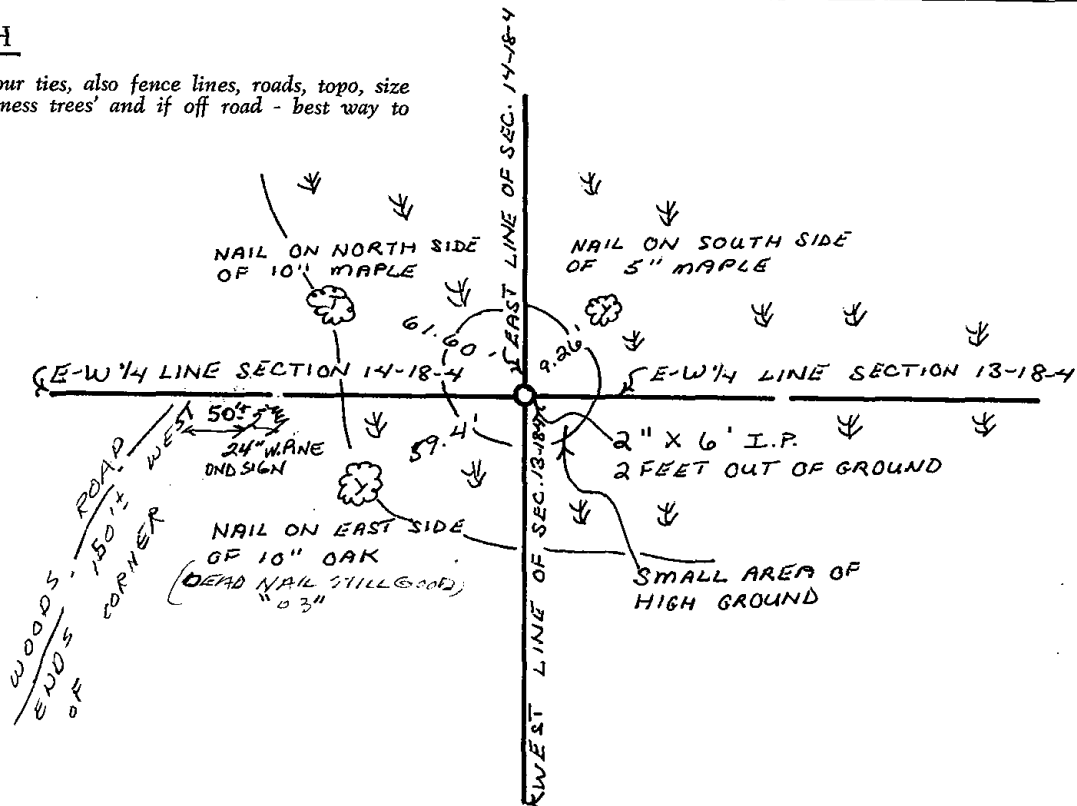 H
our ties, also fence lines, roads, topo, size
ness trees' and if off road - best way to
EAST LINE OF SEC. 14-18-4
NAIL ON NORTH SIDE
OF 10" MAPLE
NAIL ON SOUTH SIDE
OF 5" MAPLE
61.60'
9.26'
E-W 1/4 LINE SECTION 14-18-4
E-W 1/4 LINE SECTION 13-18-4
50'±
24" W. PINE
SIGN
59.4'
2" X 6' I.P.
2 FEET OUT OF GROUND
WOODS ROAD
ENDS 150'± WEST
OF CORNER
NAIL ON EAST SIDE
OF 10" OAK
(DEAD NAIL STILL GOOD)
"03"
SMALL AREA OF
HIGH GROUND
WEST LINE OF SEC. 13-18-4